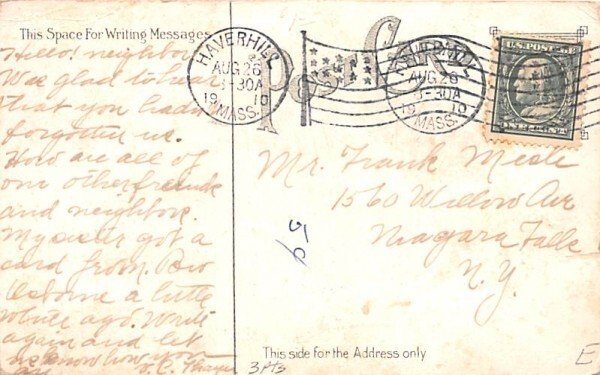 This Space For Writing Messages
Hello! neighbor
Was glad to hear
that you hadn't
forgotten us.
How are all of
our other friends
and neighbors.
My sister got a
card from
Osborne a little
while ago. Write
again and let
us know how you
V. C. Thayer
HAVERHILL
AUG 26
-30A
1910
MASS.
Post Card
HAVERHILL
AUG 26
-30A
1910
MASS.
U.S. POSTAGE
ONE CENT
Mr. Frank
1560 Willow Ave
Niagara Falls
N.Y.
59
This side for the Address only
3pts
E